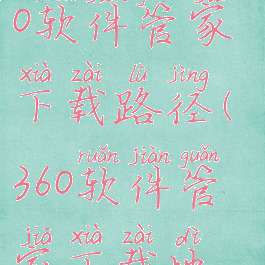 0软件管家
xià zài lù jìng
下载路径(
ruǎn jiàn guǎn
360软件管
jiā xià zài dì
家下载地